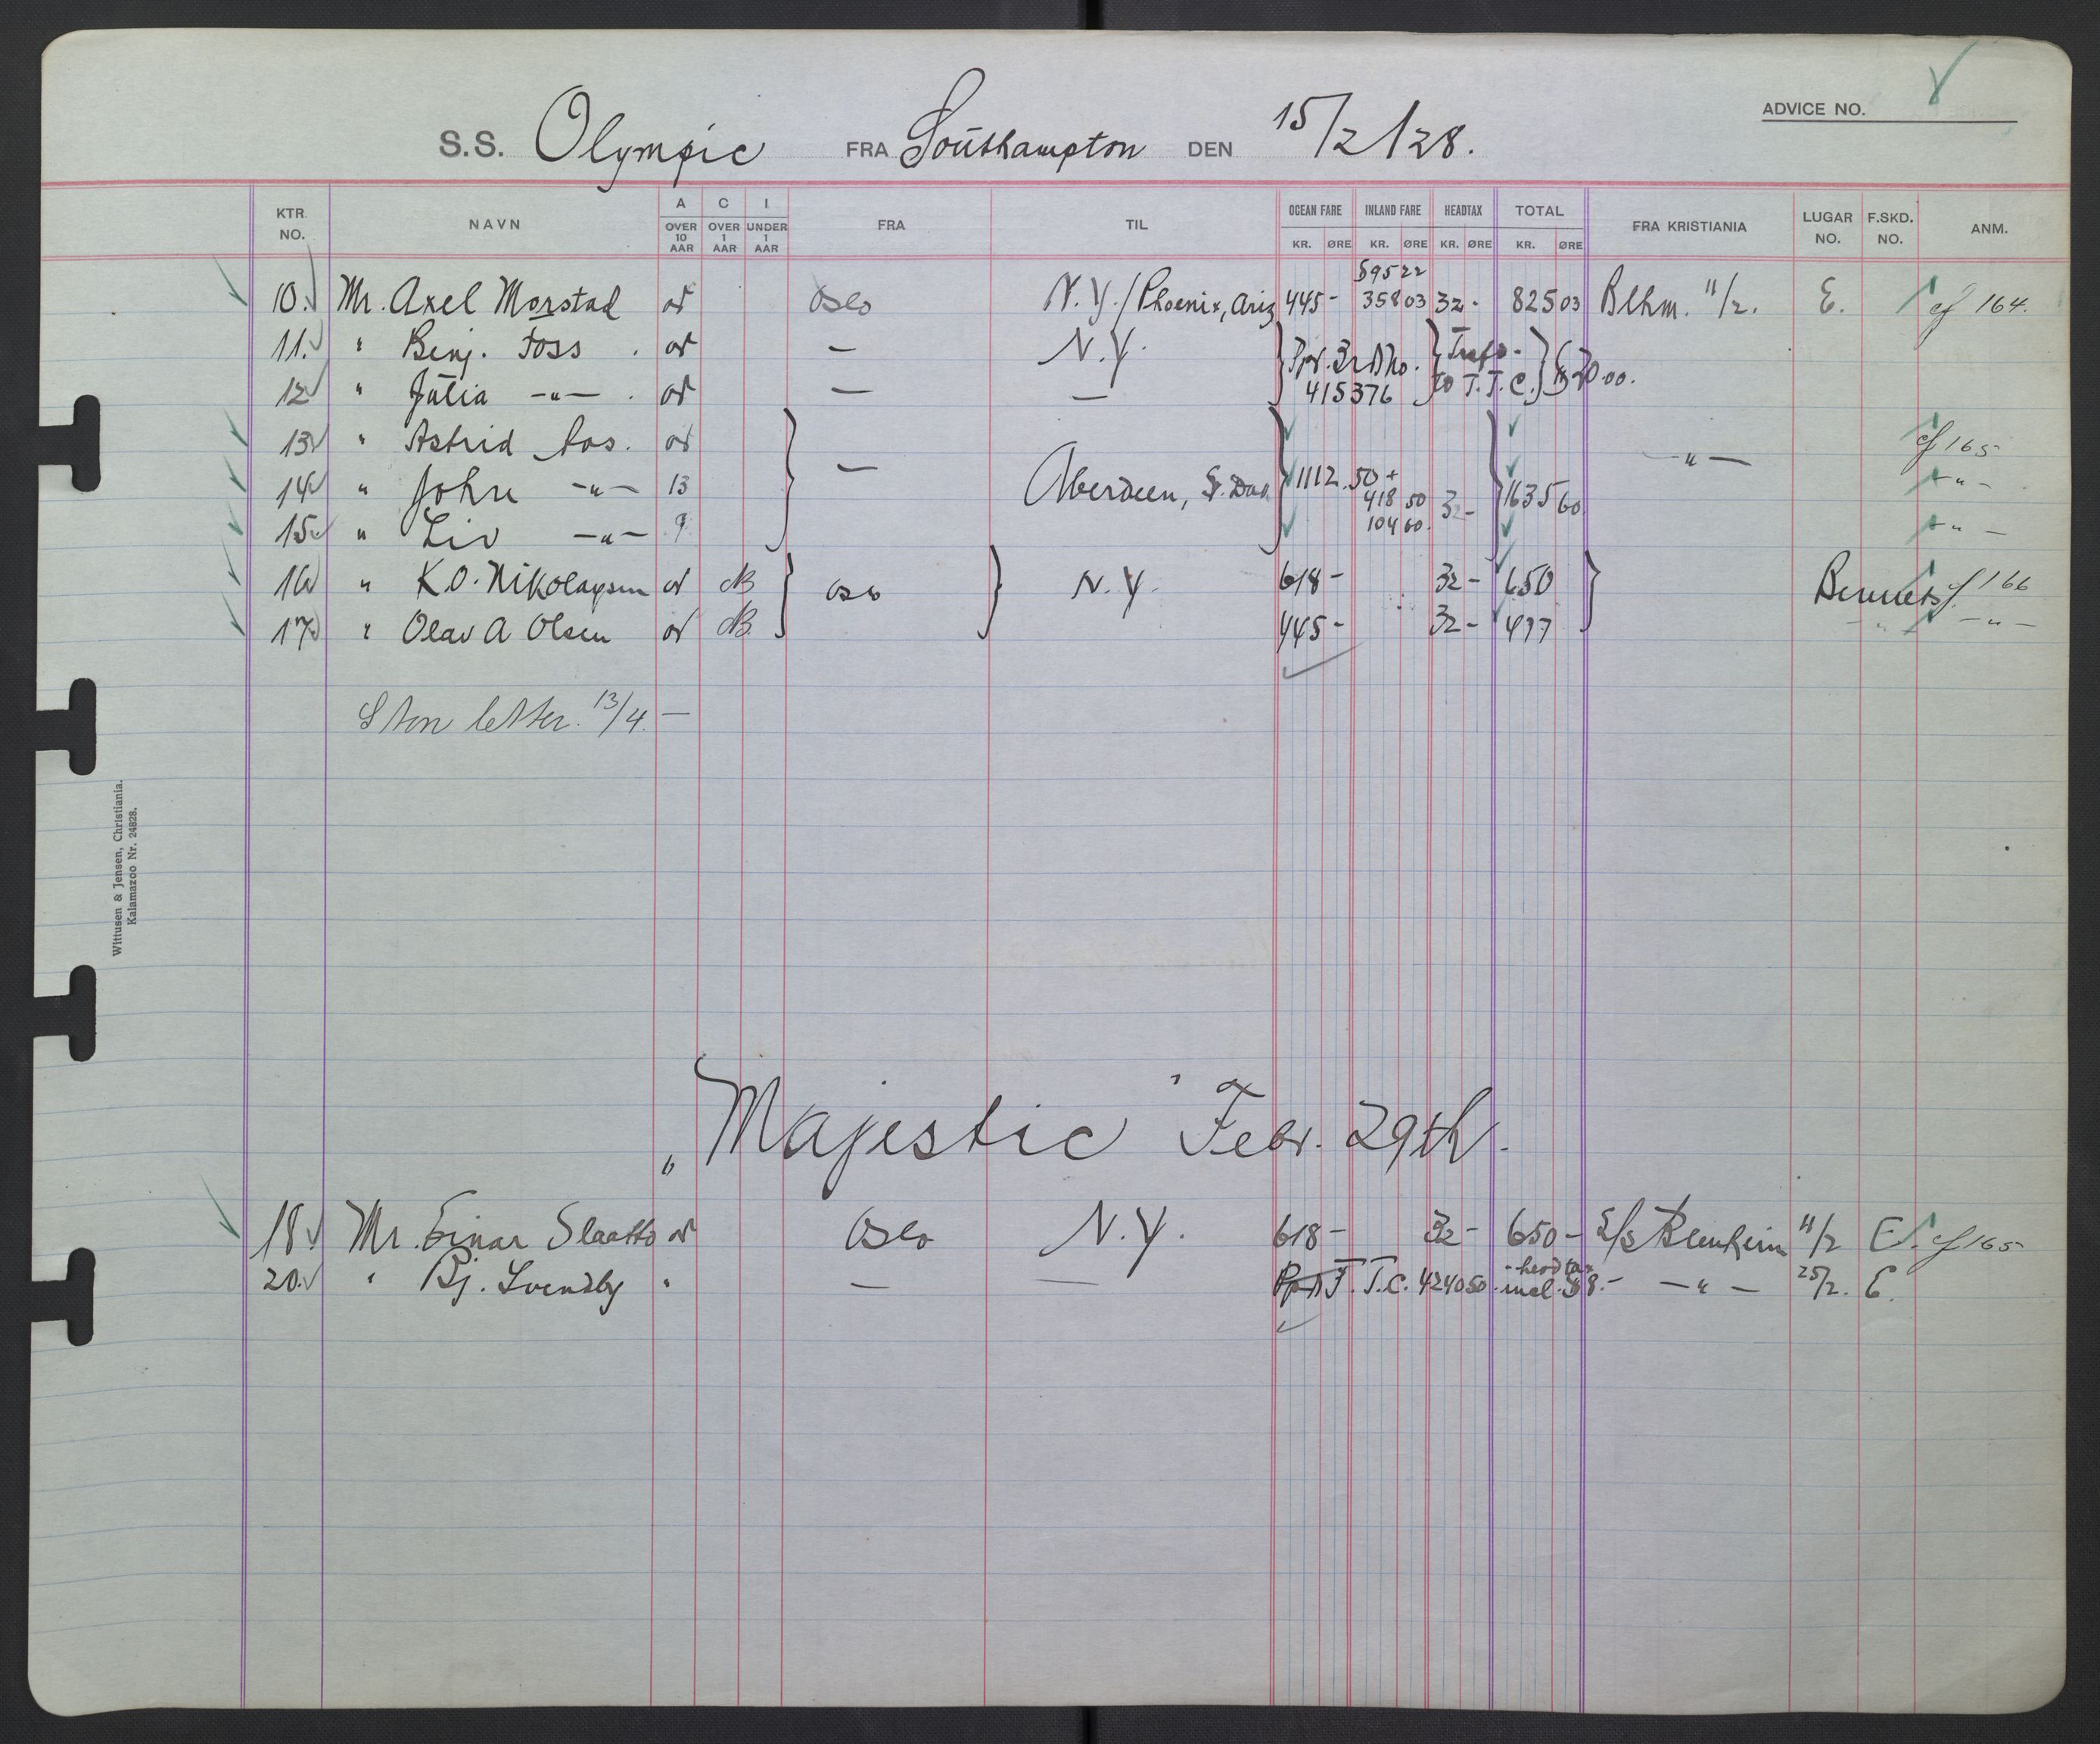 ADVICE NO.
S.S. Olympic FRA Southampton DEN 15/2/28.
KTR. NO. NAVN A OVER 10 AAR C OVER 1 AAR I UNDER 1 AAR FRA TIL OCEAN FARE KR. ØRE INLAND FARE KR. ØRE HEADTAX KR. ØRE TOTAL KR. ØRE FRA KRISTIANIA LUGAR NO. F.SKD. NO. ANM.
$95 22
10. Mr. Axel Morstad Oslo N.Y./Phoenix, Ariz 445- 358 03 32- 825 03 Blhm. 11/2. E. cf 164.
11. " Benj. Foss — N.Y.
12 " Julia -"- — — 415376 to T.T.C.
13 " Astrid cf 165
14 " John -"- 13 — Aberdeen, S. Dak 1112.50 + 418 50 32- 1635 60 -"- -"-
15 " Liv -"- 9 104 60. -"-
16 " K.O. Nikolaysen Oslo N.Y. 618- 32- 650 Bennets cf 166
17 " Olav A Olsen 445- 32- 477 -"-
Ston letter. 13/4 —
"Majestic" Febr. 29th.
18 Mr. Einar Slaatto Oslo N.Y. 618- 32- 650- S/S Blenheim 11/2 E. cf 165
headtax
20. " Bj. Svendby " — — T.C. 424050 incl. 38.- -"- 25/2. E.
Wittusen & Jensen, Christiania.
Kalamazoo Nr. 24828.